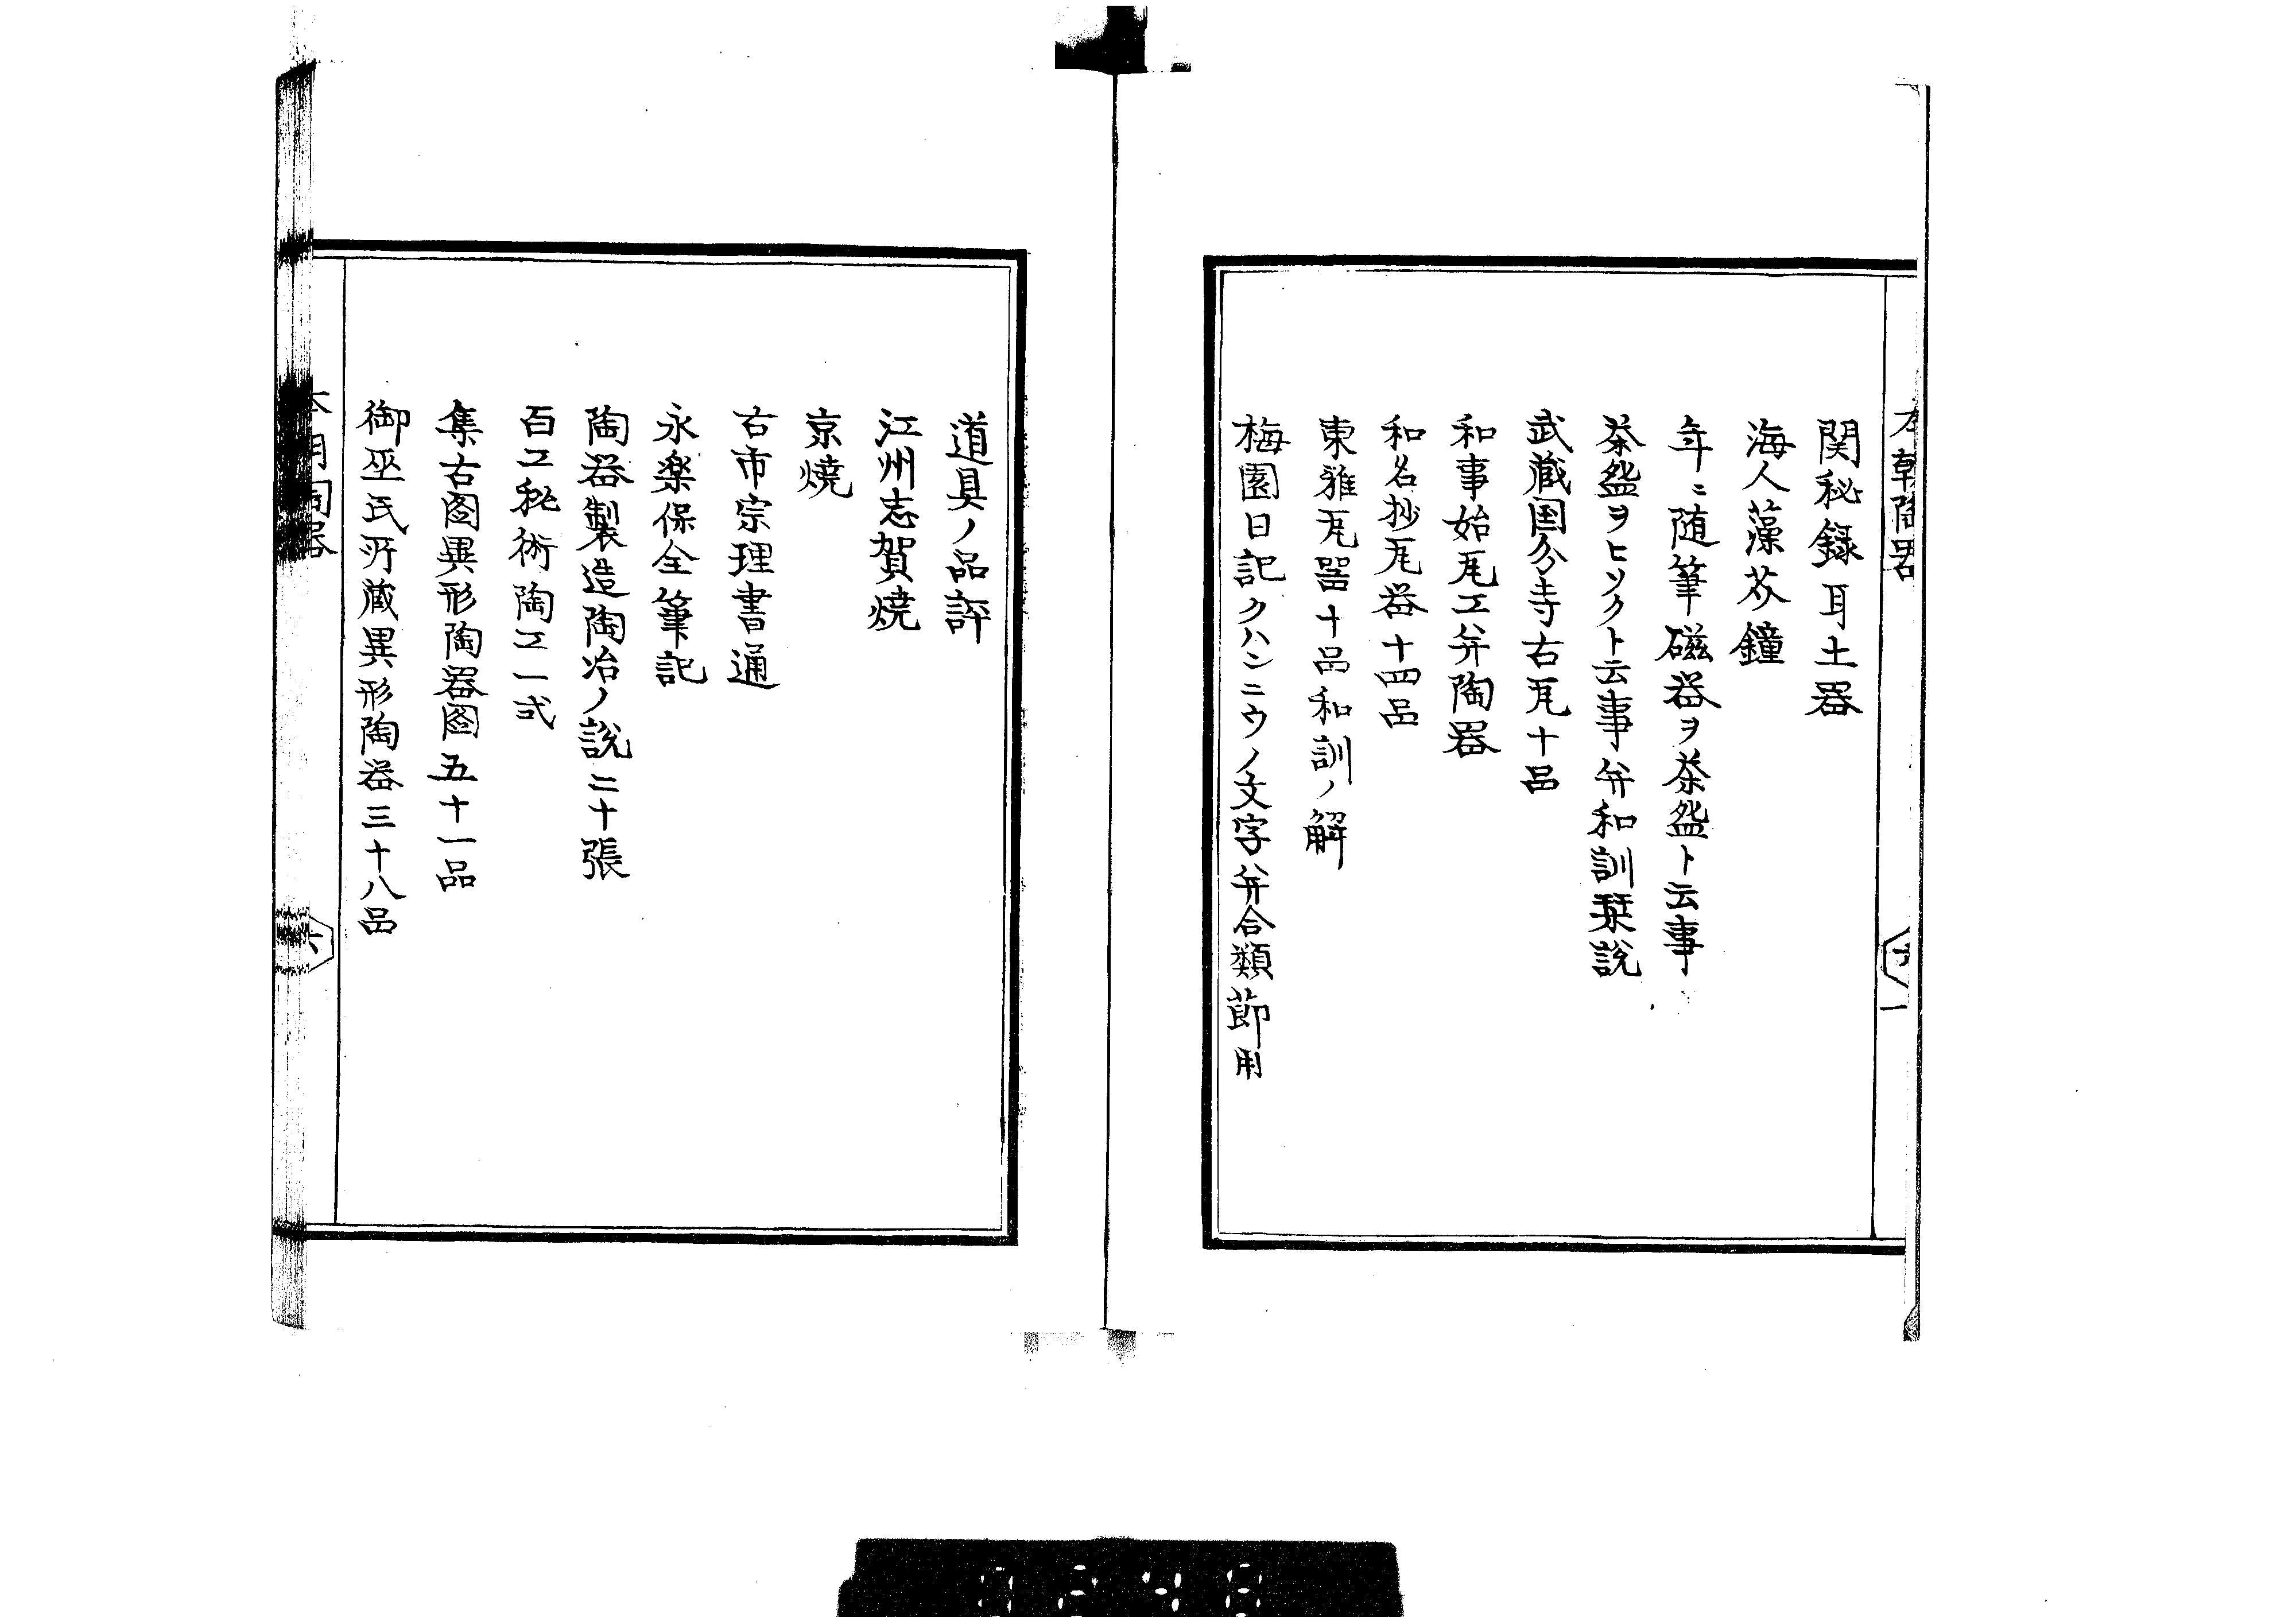 関秘録耳土器
海人藻芥鐘
年〻随筆磁器ヲ茶盌ト云事
茶盌ヲヒソクト云事并和訓栞説
武蔵国分寺古瓦十品
和事始瓦工并陶器
和名抄瓦器十四品
東雅瓦器十品和訓ノ解
梅園日記クハンニウノ文字并合類節用
道具ノ品評
江州志賀焼
京焼
古市宗理書通
永楽保全筆記
陶器製造陶冶ノ説二十張
百工秘術陶工一弐
集古図異形陶器図五十一品
御巫氏所蔵異形陶器三十八品